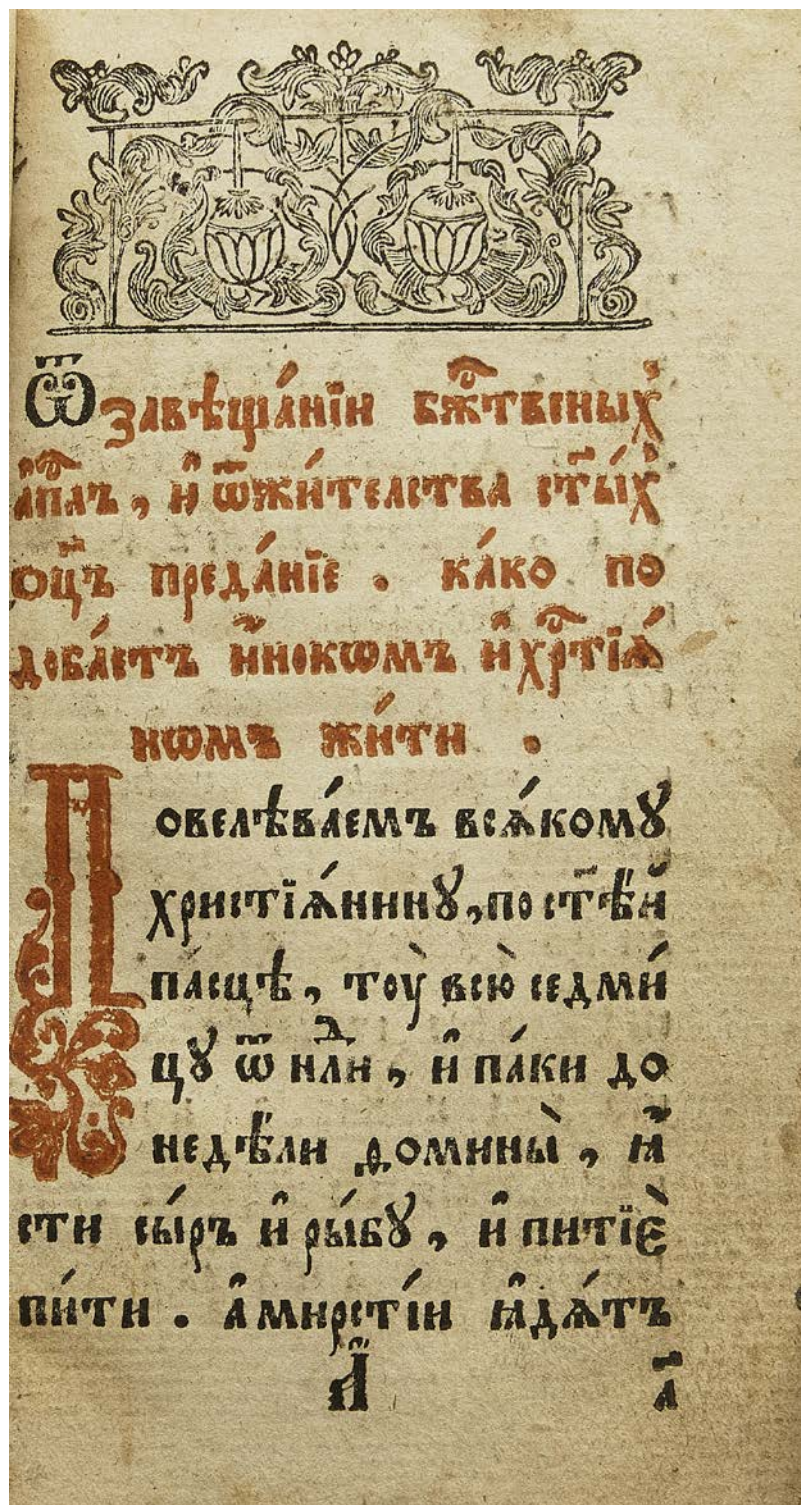 Ѿ завѣща́нїи бж҃твеныⷯ
а҆пⷭ҇лъ , и҆ ѿжи́телства ст҃ы́ⷯ
ѻц҃ъ преда́нїе . ка́ко по
доба́етъ и҆нокѡмъ и҆ хрⷭ҇тїѧ́
нѡмъ жи́ти .
Повелѣва́емъ всѧ́кому
христїѧ́нинꙋ , по ст҃ѣ́й
па́сцѣ , тоу̀ всю̀ седми́
цꙋ ѿ нлⷣи , и҆ па́ки до
недѣ́ли ѳомины̀ , ꙗ҆́
сти сы́ръ и҆ ры́бꙋ , и҆ питїѐ
пи́ти . а҆ мирсті́и ꙗ҆дѧ́тъ
А҃ а҃